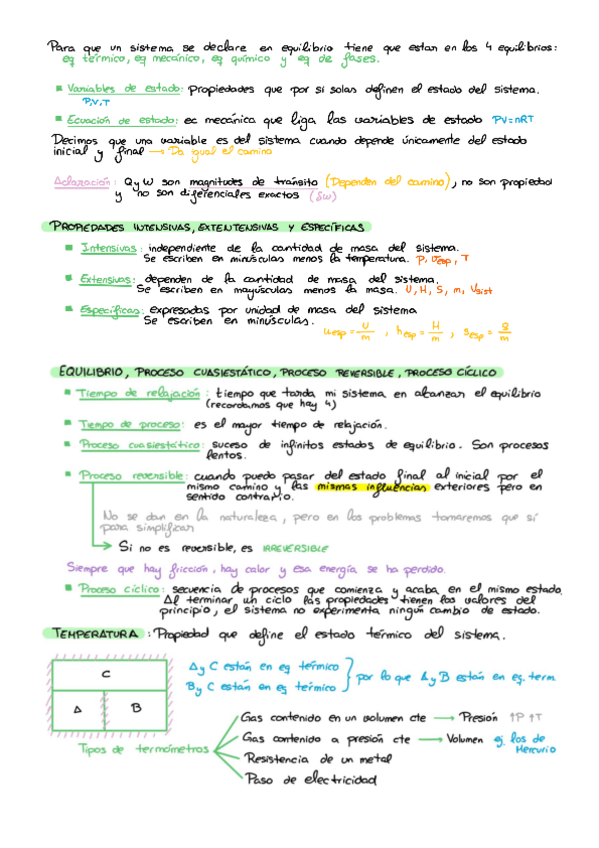 Para que un sistema se declare en equilibrio tiene que estar en los 4 equilibrios:
eq térmico, eq mecánico, eq químico y eq de fases.
Variables de estado: Propiedades que por si solas definen el estado del sistema.
P,V,T
Ecuación de estado: ec mecánica que liga las variables de estado PV=nRT
Decimos que una variable es del sistema cuando depende únicamente del estado
inicial y final → Da igual el camino
Aclaración: Q y W son magnitudes de tránsito (Dependen del camino), no son propiedad
y no son diferenciales exactos (δw)
PROPIEDADES INTENSIVAS, EXTENTENSIVAS Y ESPECÍFICAS
Intensivas: independiente de la cantidad de masa del sistema.
Se escriben en minúsculas menos la temperatura. P, vesp, T
Extensivas: dependen de la cantidad de masa del sistema.
Se escriben en mayúsculas menos la masa. U, H, S, m, Vsist
Específicas: expresadas por unidad de masa del sistema
Se escriben en minúsculas.
uesp = U/m , hesp = H/m , sesp = S/m
EQUILIBRIO, PROCESO CUASIESTÁTICO, PROCESO REVERSIBLE, PROCESO CÍCLICO
Tiempo de relajación: tiempo que tarda mi sistema en alcanzar el equilibrio
(recordamos que hay 4)
Tiempo de proceso: es el mayor tiempo de relajación.
Proceso cuasiestático: suceso de infinitos estados de equilibrio. Son procesos
lentos.
Proceso reversible: cuando puedo pasar del estado final al inicial por el
mismo camino y las mismas influencias exteriores pero en
sentido contrario.
No se dan en la naturaleza, pero en los problemas tomaremos que sí
para simplificar
→ Si no es reversible, es IRREVERSIBLE
Siempre que hay fricción, hay calor y esa energía se ha perdido.
Proceso cíclico: secuencia de procesos que comienza y acaba en el mismo estado.
Al terminar un ciclo las propiedades tienen los valores del
principio, el sistema no experimenta ningún cambio de estado.
TEMPERATURA: Propiedad que define el estado térmico del sistema.
C
A B
A y C están en eq térmico
B y C están en eq térmico
por lo que A y B están en eq. term
Tipos de termómetros
Gas contenido en un volumen cte → Presión ↑P ↑T
Gas contenido a presión cte → Volumen ej. los de
Mercurio
Resistencia de un metal
Paso de electricidad